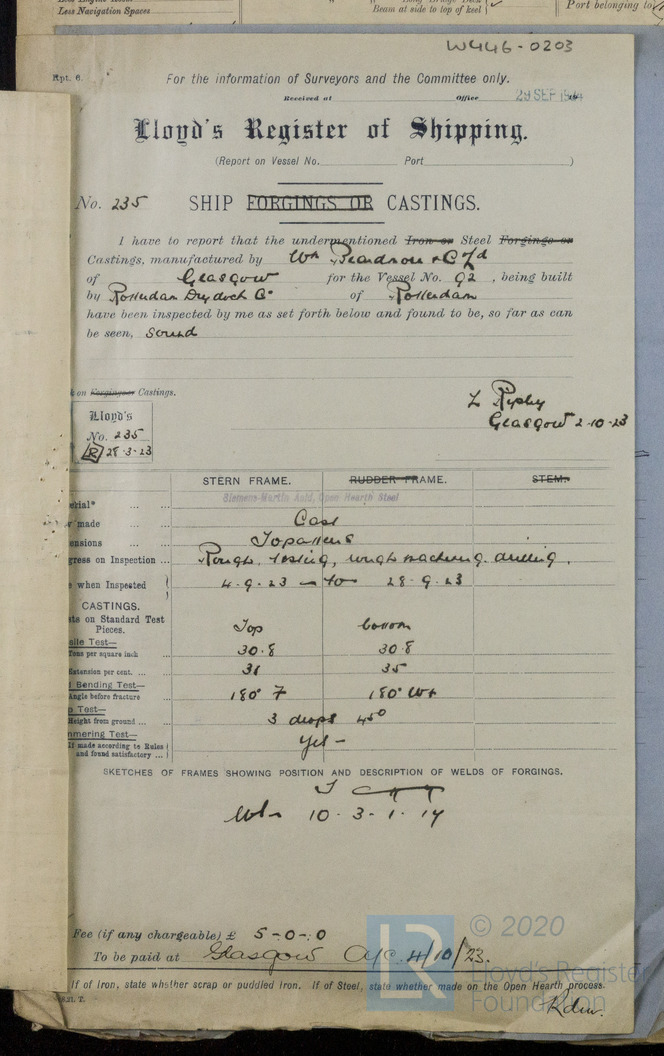 Less Navigation Spaces
Beam at side to top of keel
Port belonging to
W446-0203
Rpt. 6.
For the information of Surveyors and the Committee only.
Received at Office 29 SEP
Lloyd's Register of Shipping.
(Report on Vessel No. Port )
No. 235 SHIP FORGINGS OR CASTINGS.
I have to report that the undermentioned Iron or Steel Forgings or
Castings, manufactured by Wm Beardmore & Co Ld
of Glasgow for the Vessel No. 92, being built
by Rotterdam Drydock Co of Rotterdam
have been inspected by me as set forth below and found to be, so far as can
be seen, Sound
k on Forgings or Castings.
Lloyd's
No. 235
R 28-3-23
Glasgow 2-10-23
STERN FRAME. RUDDER FRAME. STEM.
Siemens-Martin Acid, Open Hearth Steel
erial*
made Cast
ensions
gress on Inspection Rough, testing, rough machining, drilling.
when Inspected 4-9-23 to 28-9-23
CASTINGS.
ts on Standard Test
Pieces. Top bottom
sile Test—
Tons per square inch 30.8 30.8
Extension per cent. 31 35
Bending Test—
Angle before fracture 180° 180°
Test—
Height from ground 3 drops 45°
mmering Test—
If made according to Rules
and found satisfactory Yes -
SKETCHES OF FRAMES SHOWING POSITION AND DESCRIPTION OF WELDS OF FORGINGS.
T C Q
Wt- 10-3-1-14
Fee (if any chargeable) £ 5-0-0
To be paid at Glasgow A/c. 4/10/23.
If of Iron, state whether scrap or puddled Iron. If of Steel, state whether made on the Open Hearth process.
LR
© 2020
Lloyd's Register
Foundation